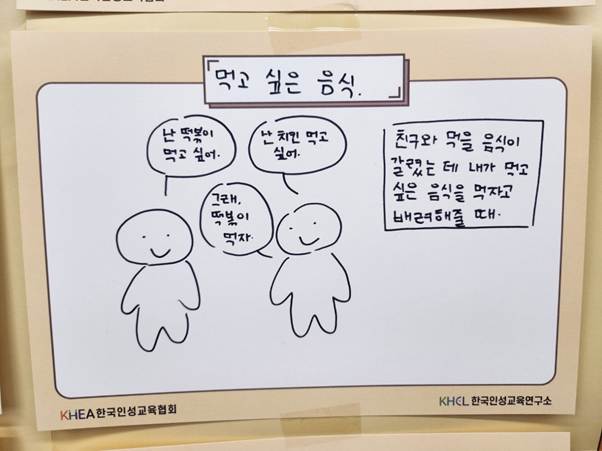 먹고 싶은 음식.
난 떡볶이
먹고 싶어.
난 치킨 먹고
싶어.
그래,
떡볶이
먹자.
친구와 먹을 음식이
갈렸는 데 내가 먹고
싶은 음식을 먹자고
배려해줄 때.
KHEA한국인성교육협회
KHCL 한국인성교육연구소